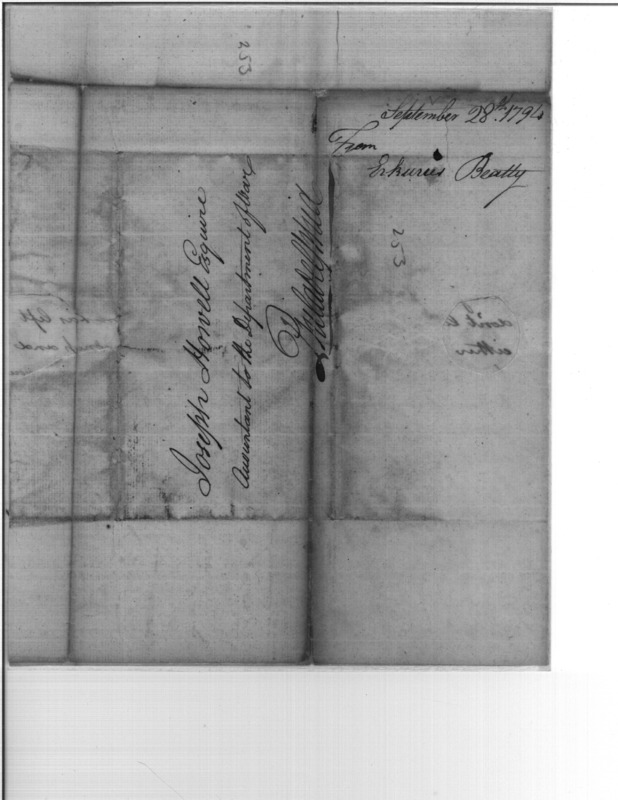 253
September 28th. 1794
From
Erkuries Beatty
253
Joseph Howell Esquire
Accountant to the Department of War
Philadelphia